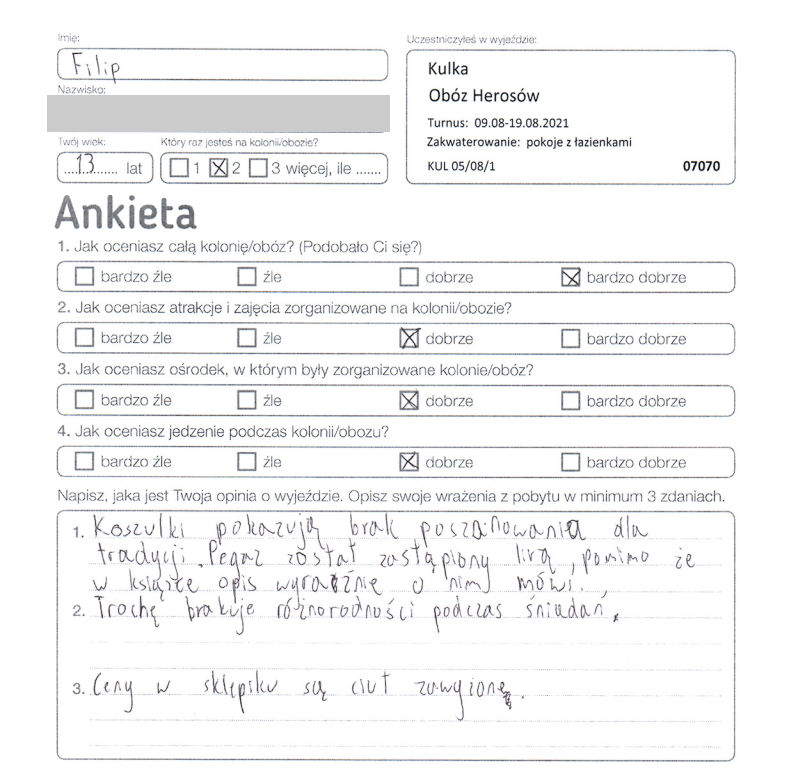 Imię:
Filip
Uczestniczyłeś w wyjeździe:
Kulka
Obóz Herosów
Turnus: 09.08-19.08.2021
Zakwaterowanie: pokoje z łazienkami
KUL 05/08/1 07070
Nazwisko:
Twój wiek: Który raz jesteś na kolonii/obozie?
13 lat 1 2 3 więcej, ile .......
Ankieta
1. Jak oceniasz całą kolonię/obóz? (Podobało Ci się?)
bardzo źle źle dobrze bardzo dobrze
2. Jak oceniasz atrakcje i zajęcia zorganizowane na kolonii/obozie?
bardzo źle źle dobrze bardzo dobrze
3. Jak oceniasz ośrodek, w którym były zorganizowane kolonie/obóz?
bardzo źle źle dobrze bardzo dobrze
4. Jak oceniasz jedzenie podczas kolonii/obozu?
bardzo źle źle dobrze bardzo dobrze
Napisz, jaka jest Twoja opinia o wyjeździe. Opisz swoje wrażenia z pobytu w minimum 3 zdaniach.
1. Koszulki pokazują brak poszanowania dla
tradycji. Pegaz został zastąpiony lirą, pomimo że
w książce opis wyraźnie o nim mówi.
2. Trochę brakuje różnorodności podczas śniadań.
3. Ceny w sklepiku są ciut zawyżone.